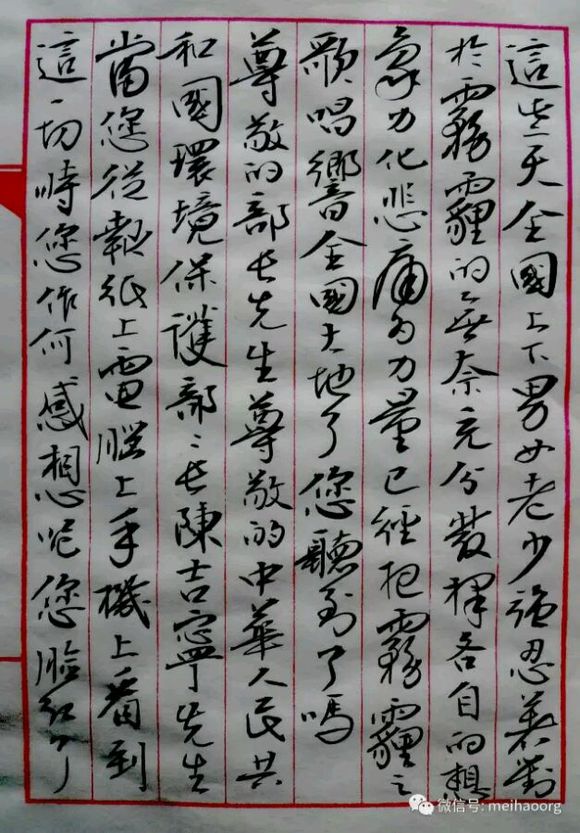 這些天全國上下男女老少強忍着對
於霧霾的無奈充分發揮各自的想
象力化悲痛為力量已經把霧霾之
歌唱響全國大地了您聽到了嗎
尊敬的部長先生尊敬的中華人民共
和國環境保護部々長陳吉寧先生
當您從報紙上電腦上手機上看到
這一切時您作何感想呢您臉紅了
微信号: meihaoorg